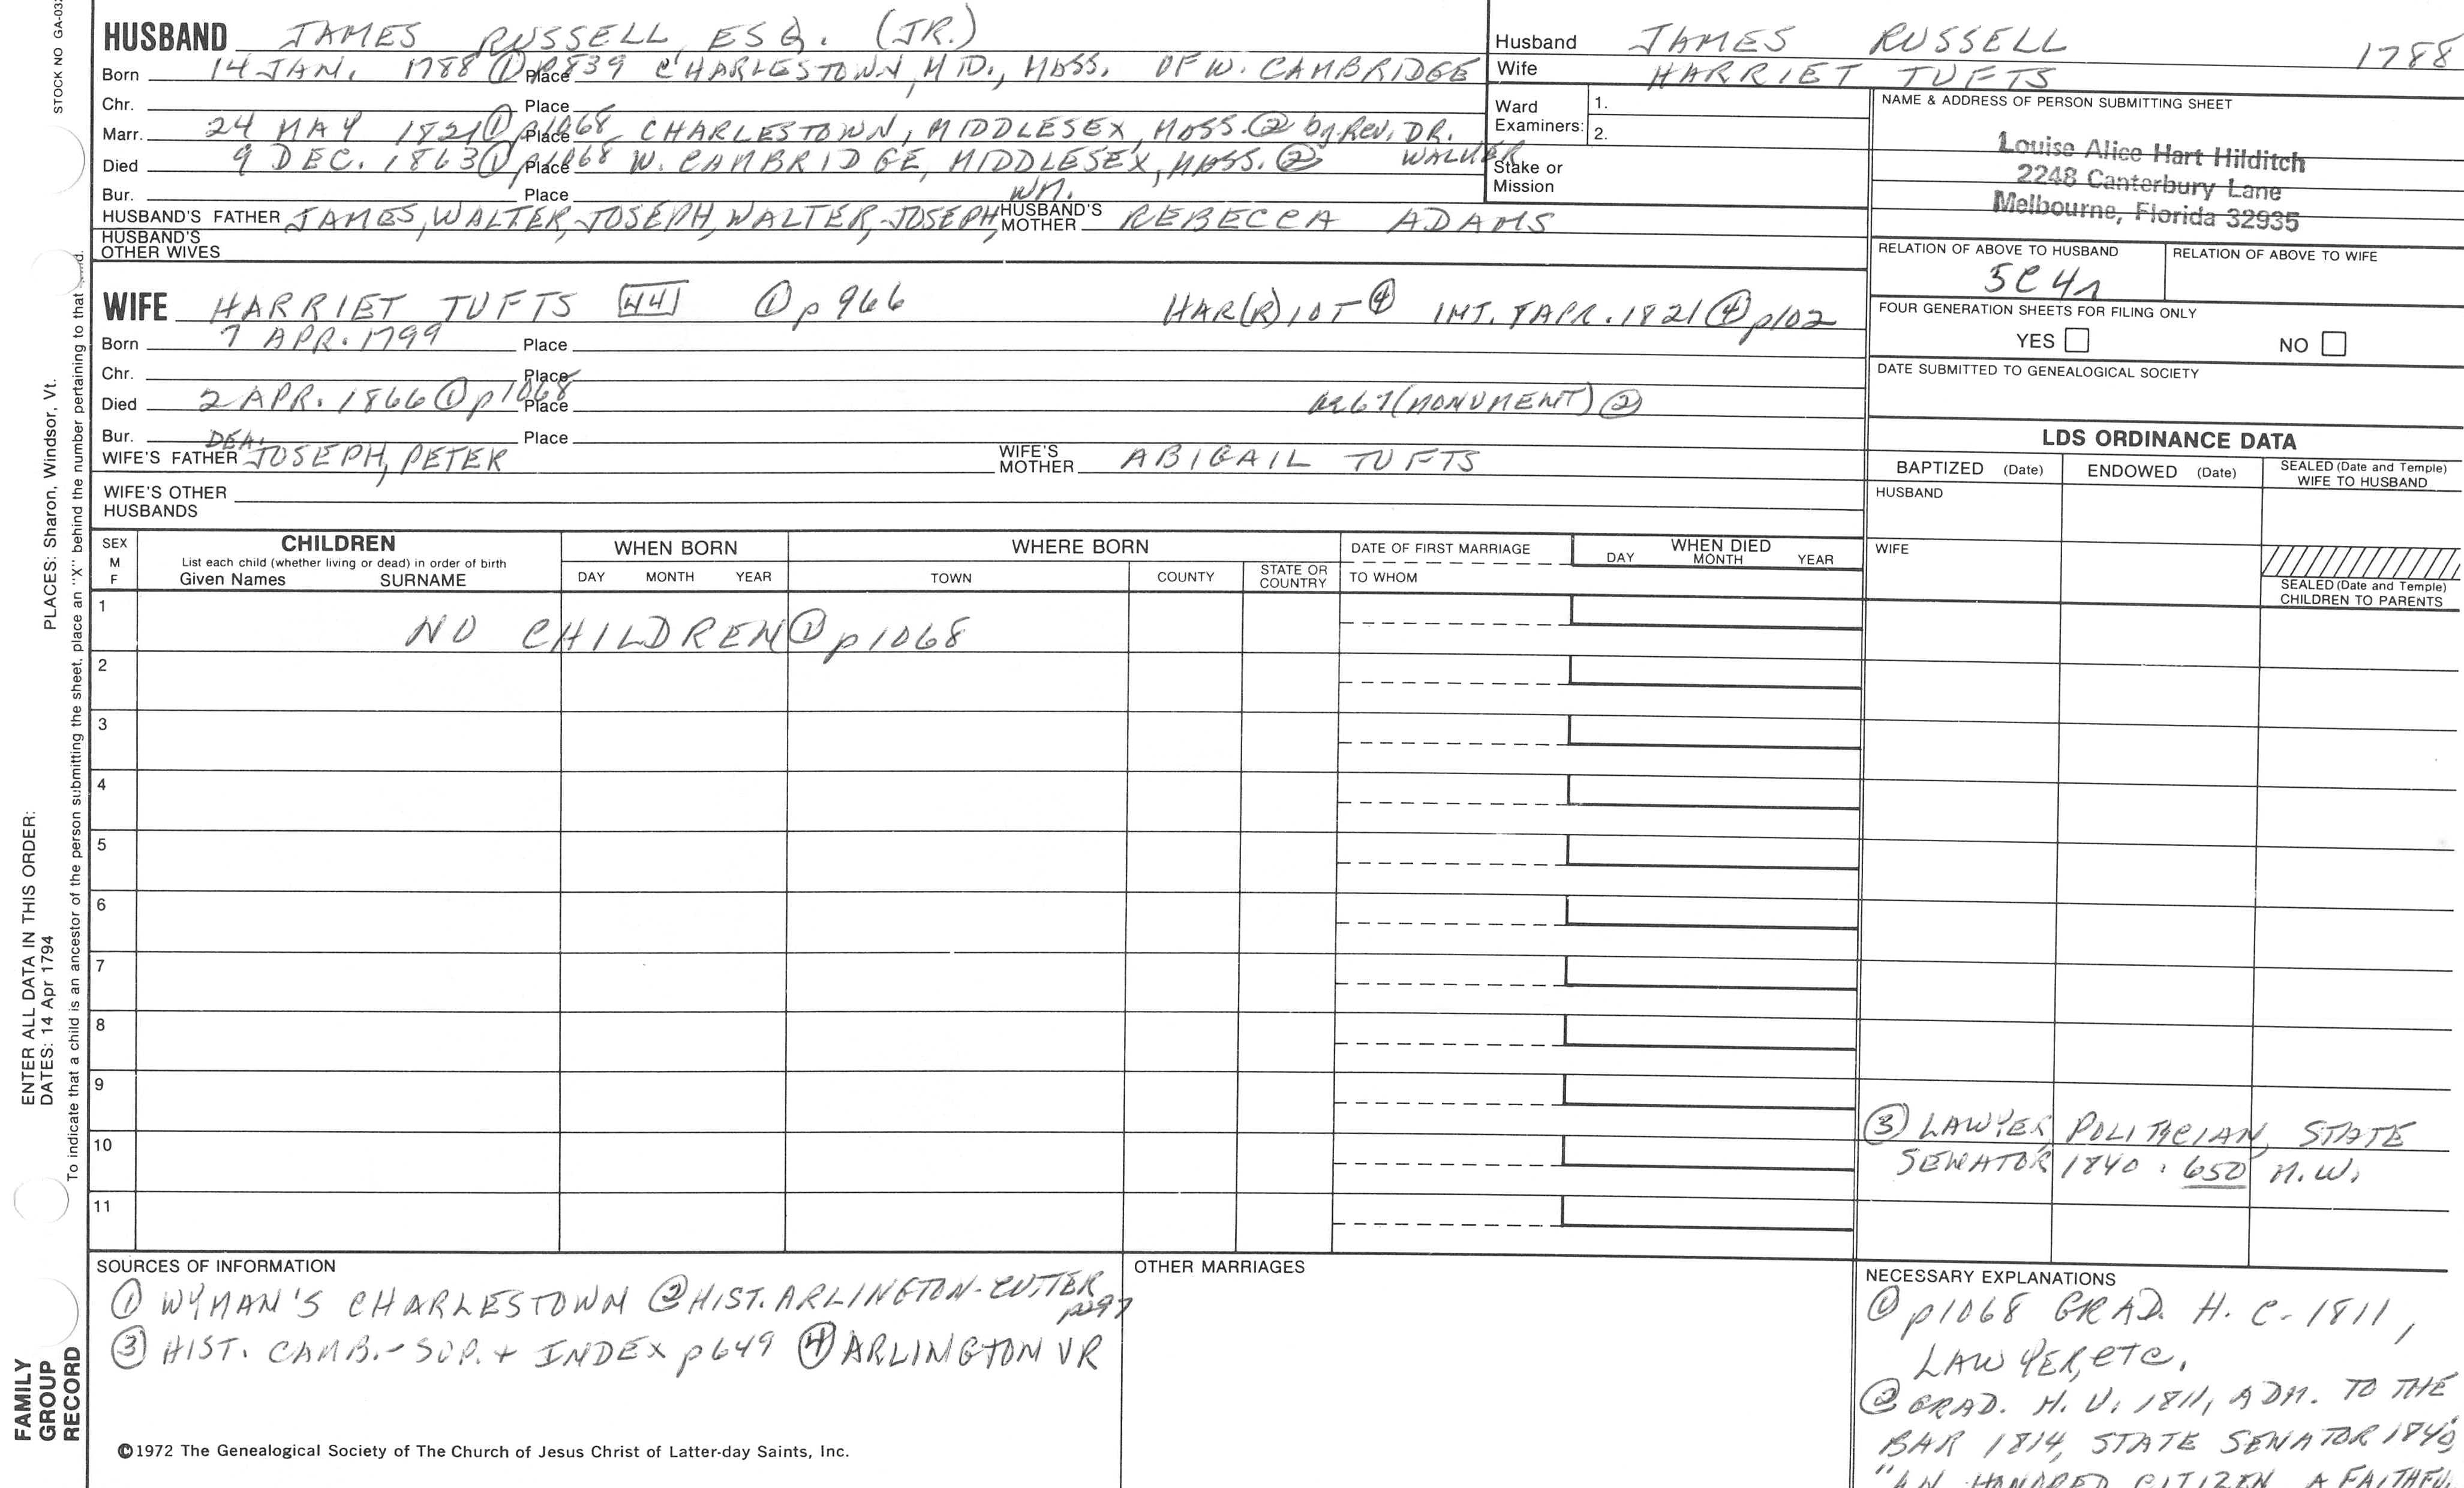 STOCK NO GA-03
HUSBAND JAMES RUSSELL ESQ. (JR.)
Born 14 JAN. 1788 ① p839 Place CHARLESTOWN, MID., MASS. OF W. CAMBRIDGE
Chr. Place
Marr. 24 MAY 1821 ① p1068 Place CHARLESTOWN, MIDDLESEX, MASS. ② by Rev. DR. WALKER
Died 9 DEC. 1863 ① p1068 Place W. CAMBRIDGE, MIDDLESEX, MASS. ②
Bur. Place
HUSBAND'S FATHER JAMES, WALTER, JOSEPH, WALTER, JOSEPH, WM. HUSBAND'S MOTHER REBECCA ADAMS
HUSBAND'S OTHER WIVES
Husband JAMES RUSSELL 1788
Wife HARRIET TUFTS
Ward Examiners: 1.
2.
Stake or Mission
NAME & ADDRESS OF PERSON SUBMITTING SHEET
Louise Alice Hart Hilditch
2248 Canterbury Lane
Melbourne, Florida 32935
RELATION OF ABOVE TO HUSBAND RELATION OF ABOVE TO WIFE
5C4r
FOUR GENERATION SHEETS FOR FILING ONLY
YES NO
DATE SUBMITTED TO GENEALOGICAL SOCIETY
WIFE HARRIET TUFTS 44 ① p966 HAR(R)IOT ④ INT. 8 APR. 1821 ④ p102
Born 7 APR. 1799 Place
Chr. Place
Died 2 APR. 1866 ① p1068 Place (MONUMENT) ②
Bur. Place
WIFE'S FATHER DEA. JOSEPH, PETER WIFE'S MOTHER ABIGAIL TUFTS
WIFE'S OTHER HUSBANDS
LDS ORDINANCE DATA
BAPTIZED (Date) ENDOWED (Date) SEALED (Date and Temple) WIFE TO HUSBAND
HUSBAND
WIFE
SEALED (Date and Temple) CHILDREN TO PARENTS
SEX M F CHILDREN WHEN BORN WHERE BORN DATE OF FIRST MARRIAGE WHEN DIED
List each child (whether living or dead) in order of birth
Given Names SURNAME DAY MONTH YEAR TOWN COUNTY STATE OR COUNTRY TO WHOM DAY MONTH YEAR
1 NO CHILDREN ① p1068
2
3
4
5
6
7
8
9
10
11
③ LAWYER, POLITICIAN, STATE
SENATOR 1840. 650 N.W.
SOURCES OF INFORMATION
① WYMAN'S CHARLESTOWN ② HIST. ARLINGTON-CUTTER p297
③ HIST. CAMB.- SUP. + INDEX p649 ④ ARLINGTON VR
OTHER MARRIAGES
NECESSARY EXPLANATIONS
① p1068 GRAD. H. C. 1811,
LAWYER, etc.
② GRAD. H. U. 1811, ADM. TO THE
BAR 1814, STATE SENATOR 1840,
"AN HONORED CITIZEN, A FAITHFUL
©1972 The Genealogical Society of The Church of Jesus Christ of Latter-day Saints, Inc.
PLACES: Sharon, Windsor, Vt.
To indicate that a child is an ancestor of the person submitting the sheet, place an "X" behind the number pertaining to that
ENTER ALL DATA IN THIS ORDER:
DATES: 14 Apr 1794
FAMILY
GROUP
RECORD